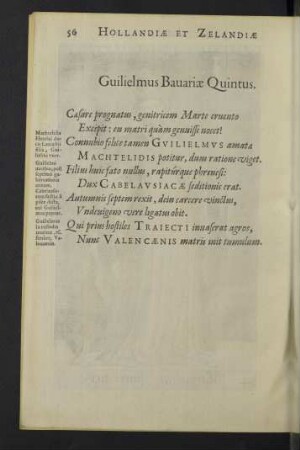 56 HOLLANDIÆ ET ZELANDIÆ
Guilielmus Bavariæ Quintus.
Cæsare prognatus, genitricem Marte cruento
Excipit: eu matri quàm genuisse nocet!
Connubio felix tamen GVILIELMVS amatæ
MACHTELIDIS potitur, dum ratione viget.
Filius huic fato nullus, rapitúrque phrenesi:
Dux CABELAVSIACÆ seditionis erat.
Autumnis septem rexit, dein carcere vinctus,
Vndevigeno vere ligatus obit.
Qui prius hostiles TRAIECTI invaserat agros,
Nunc VALENCÆNIS matris init tumulum.
Machtelda
Henrici du-
cis Lancastriæ
filia, Gui-
lielmi uxor.